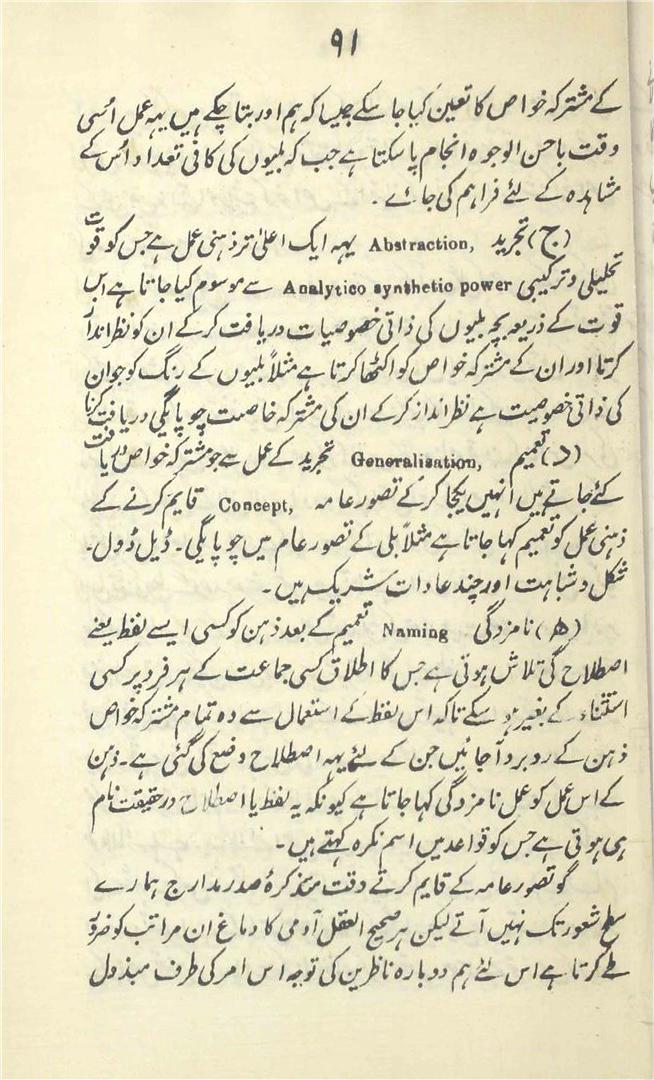 ۹۱
کے مشترکہ خواص کا تعین کیا جا سکے جیسا کہ ہم اور بتا چکے ہیں یہہ عمل اُسی
وقت باحسن الوجوہ انجام پا سکتا ہے جب کہ بلیوں کی کافی تعداد اُس کے
مشاہدہ کے لئے فراہم کی جائے۔
(ج) تجرید Abstraction, یہہ ایک اعلیٰ تر ذہنی عمل ہے جس کو قوت
تحلیلی و ترکیبی Analytico synthetic power سے موسوم کیا جاتا ہے اس
قوت کے ذریعہ بچہ بلیوں کی ذاتی خصوصیات دریافت کر کے ان کو نظر انداز
کرتا اور ان کے مشترکہ خواص کو اکٹھا کرتا ہے مثلاً بلیوں کے رنگ کو جو ان
کی ذاتی خصوصیت ہے نظر انداز کر کے ان کی مشترکہ خاصیت چوپایگی دریافت کرنا
(د) تعمیم Generalisation, تجرید کے عمل سے جو مشترکہ خواص دریافت
کئے جاتے ہیں اُنہیں یکجا کر کے تصور عامہ Concept, قایم کرنے کے
ذہنی عمل کو تعمیم کہا جاتا ہے مثلاً بلی کے تصور عام میں چوپایگی۔ ڈیل ڈول۔
شکل و شباہت اور چند عادات شریک ہیں۔
(ھ) نامزدگی Naming تعمیم کے بعد ذہن کو کسی ایسے لفظ یعنے
اصطلاح کی تلاش ہوتی ہے جس کا اطلاق کسی جماعت کے ہر فرد پر کسی
استثناء کے بغیر ہو سکے تاکہ اس لفظ کے استعمال سے وہ تمام مشترکہ خواص
ذہن کے روبرو آ جائیں جن کے لئے یہہ اصطلاح وضع کی گئی ہے۔ ذہن
کے اس عمل کو عمل نامزدگی کہا جاتا ہے کیونکہ یہ لفظ یا اصطلاح درحقیقت نام
ہی ہوتی ہے جس کو قواعد میں اسم نکرہ کہتے ہیں۔
گو تصور عامہ کے قایم کرتے وقت متذکرۂ صدر مدارج ہمارے
سطح شعور تک نہیں آتے لیکن ہر صحیح العقل آدمی کا دماغ ان مراتب کو ضرور
طے کرتا ہے اس لئے ہم دوبارہ ناظرین کی توجہ اس امر کی طرف مبذول